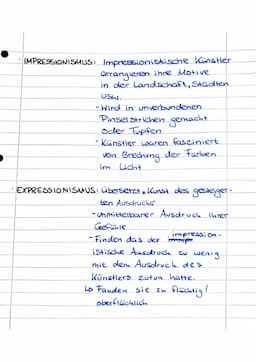 IMPRESSIONISMUS: Impressionistische Künstler
arrangieren ihre Motive
in der Landschaft, Städten
usw.
- Wird in unverbundenen
Pinselstrichen gemacht
oder Tupfen
- Künstler waren fasziniert
von Brechung der Farben
im Licht
EXPRESSIONISMUS: übersetzt „Kunst des gesteiger-
ten Ausdrucks"
- unmittelbarer Ausdruck ihrer
Gefühle
- Finden das der impression-
istische Ausdruck zu wenig
mit dem Ausdruck des
Künstlers zutun hatte.
↳ Fanden sie zu flüchtig/
oberflächlich